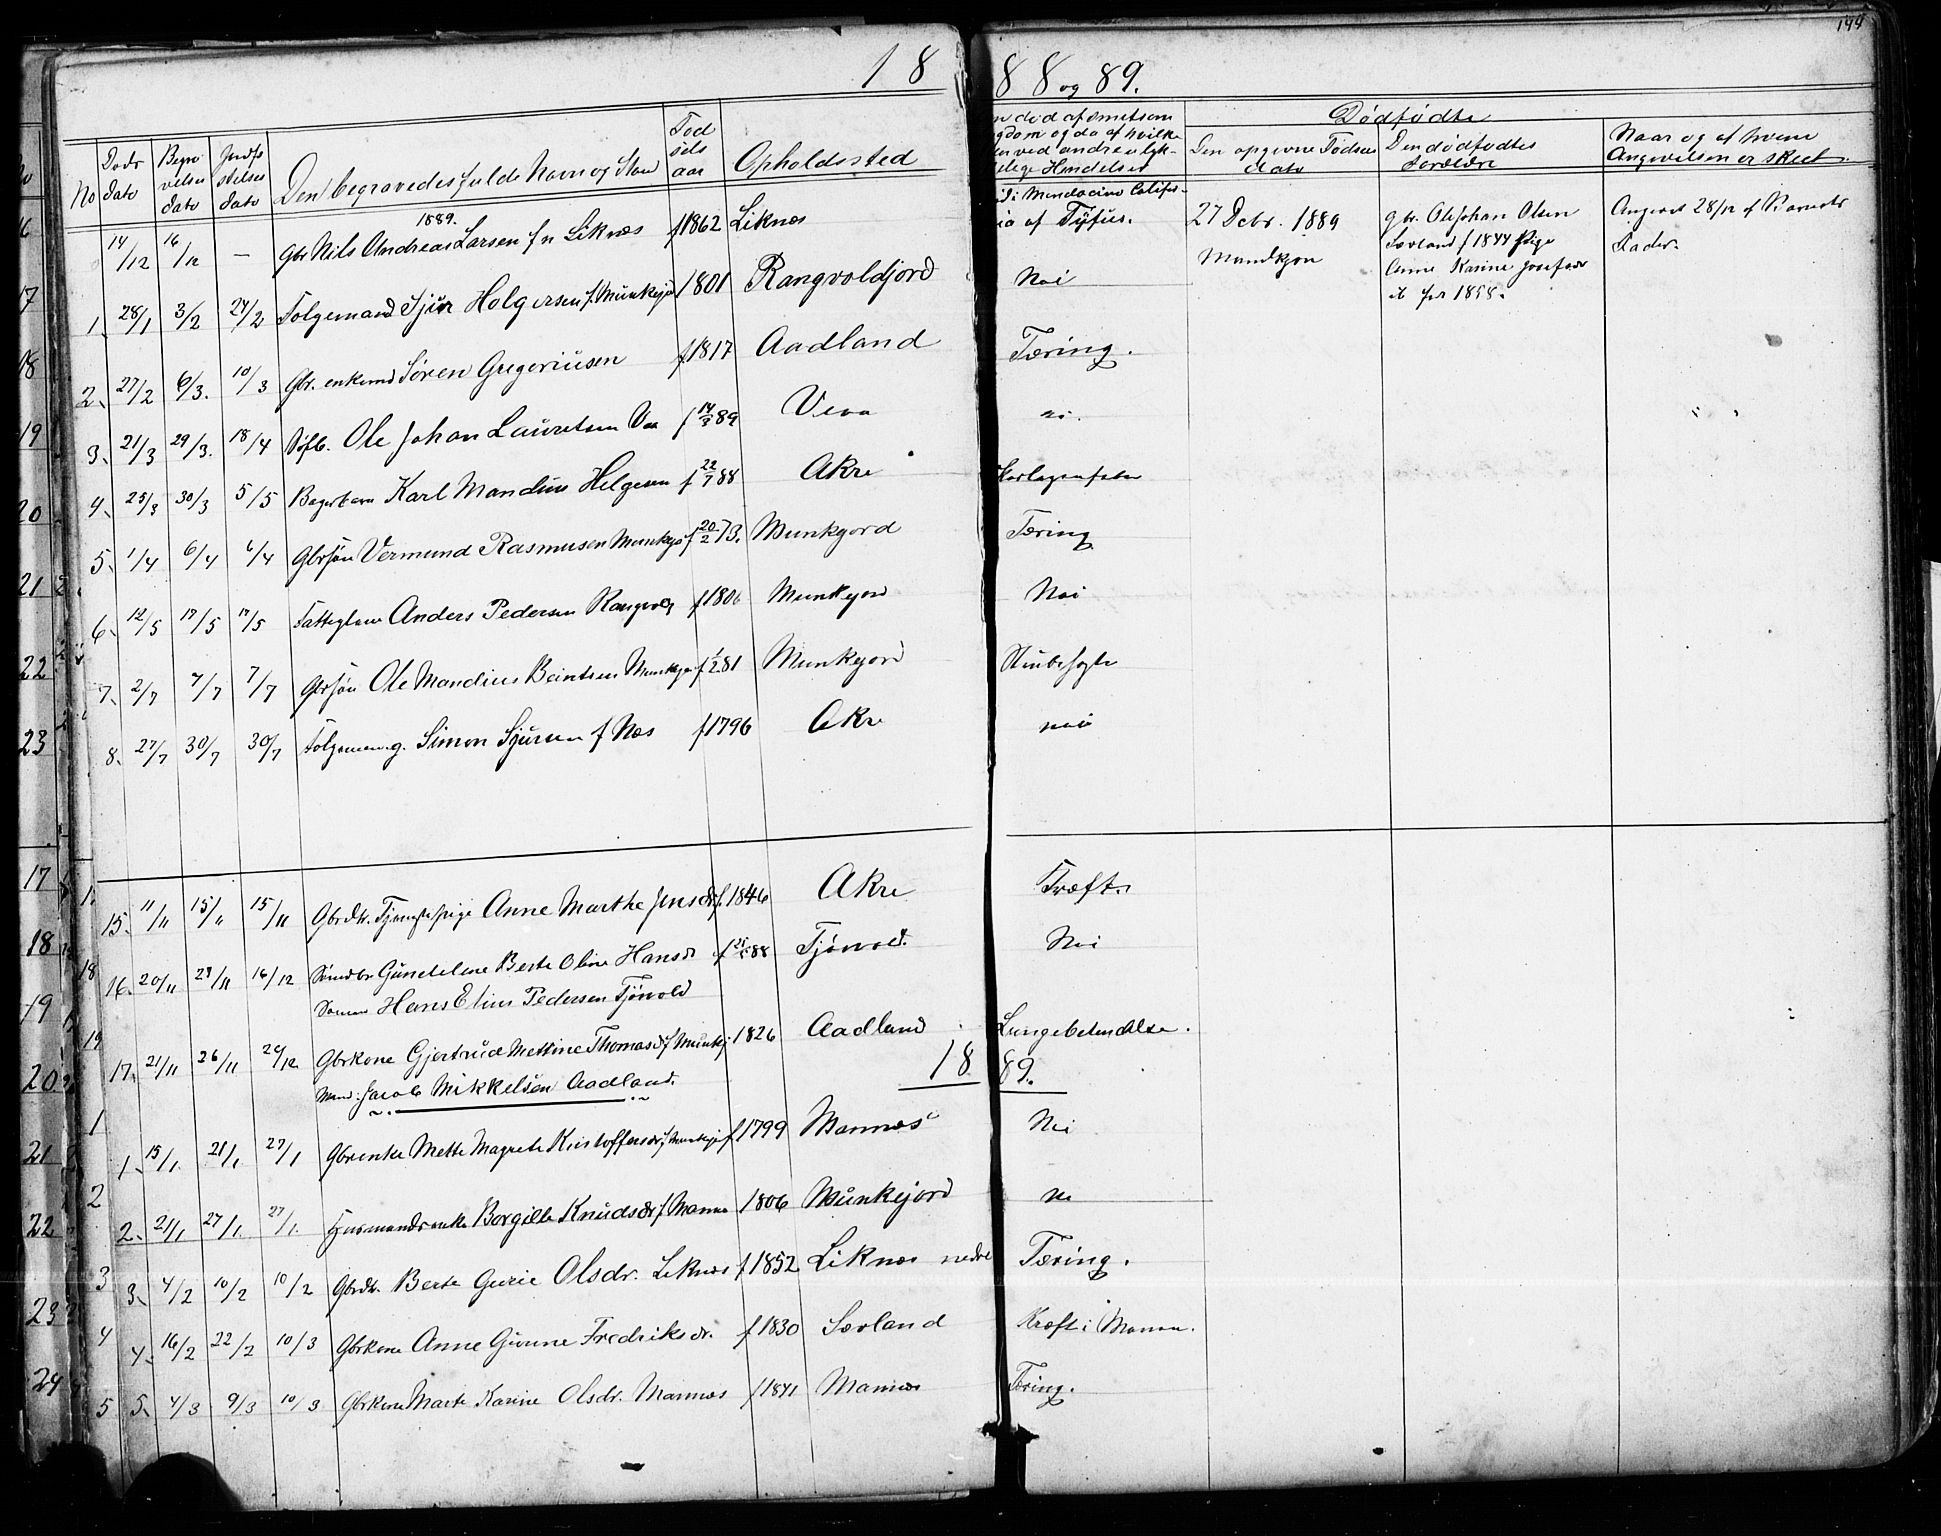 144
18 88 og 89.
No Døds dato Begravelses dato Jordfæstelses dato Den begravedes fulde Navn og Stand Fødselsaar Opholdssted
n død af smitsom
gdom og da af hvilke
ler ved andre ulyk-
elige Hændelser
Dødfødte
Den opgivne Fødsels dato
Den dødfødtes Forældre
Naar og af hvem Angivelsen er skeet
14/12 16/12 — 1889. Gbr Nils Andreas Larsen f n Liknes f 1862 Liknes i Mendocino Califor- ia af Tyfus.
27 Debr. 1889
Mandkjøn
gbr. Ole Johan Olsen
Sørland f 1844 Pige
Anne Karine Josefsdr
ib før 1858.
Angivet 28/12 af Barnets
Fader.
1. 28/1 3/2 24/2 Folgemand Sjur Holgersen f. Munkejo 1801 Rangvoldjord Nei
2. 27/2 6/3. 10/3 Gbr. enkemd Sören Gregoriusen f 1817 Aadland Tæring.
3. 21/3 29/3. 18/4 Ole Johan Lauretsen Vea f 14/3 89 Vea nei.
4. 25/3 30/3 5/5 Karl Mandius Helgesen f 22/7 88 Akre Skarlagensfeber
5. 1/4 6/4 6/4 Gbrsøn Vermund Rasmusen Munkejo f 20/2 73. Munkgord Tæring
6. 12/5 17/5 17/5 Fattiglem Anders Pedersen Rangvog f 1806 Munkejord Nei
7. 2/7 7/7 7/7 Gbrsøn Ole Mandius Beintsen Munkejo f 1/2 81 Munkejord
8. 27/7 30/7 30/7 Folgemand g. Simon Sjursen f Nes f 1796 Akre nei
15. 11/11 15/11 15/11 Gbrdtr. Tjenestepige Anne Marthe Jensdr f. 1846 Akre Kræft.
16. 20/11 23/11 16/12 Gundelene Berte Oline Hansdr f 88 Tjøsvold. Nei
Hans Elius Pedersen Tjøsvold
17. 21/11 26/11 26/12 Gbrkone Gjertrud Mettine Thomasdr f Munkj 1826 Aadland Lungebetendelse.
Mand: Jacob Mikkelsen Aadland.
1889.
1. 15/1. 21/1. 27/1 Gbrenke Mette Magrete Kristoffersdr f Munkejo f 1799 Mannes Nei
2. 21/1 27/1. 27/1. Husmandsenke Borgille Knudsdr f Mannes 1806 Munkejord Nei
3. 4/2 10/2 10/2 Gbrdtr. Berte Gurie Olsdr. Liknes f 1852 Liknes nedre Tæring.
4. 16/2 22/2 10/3 Gbrkone Anne Gunne Fredriksdr. f 1830 Sørland Kræft i Maven.
5. 4/3 9/3 10/3 Gbrkone Marte Karine Olsdr. Mannes f 1841 Mannes Tæring.